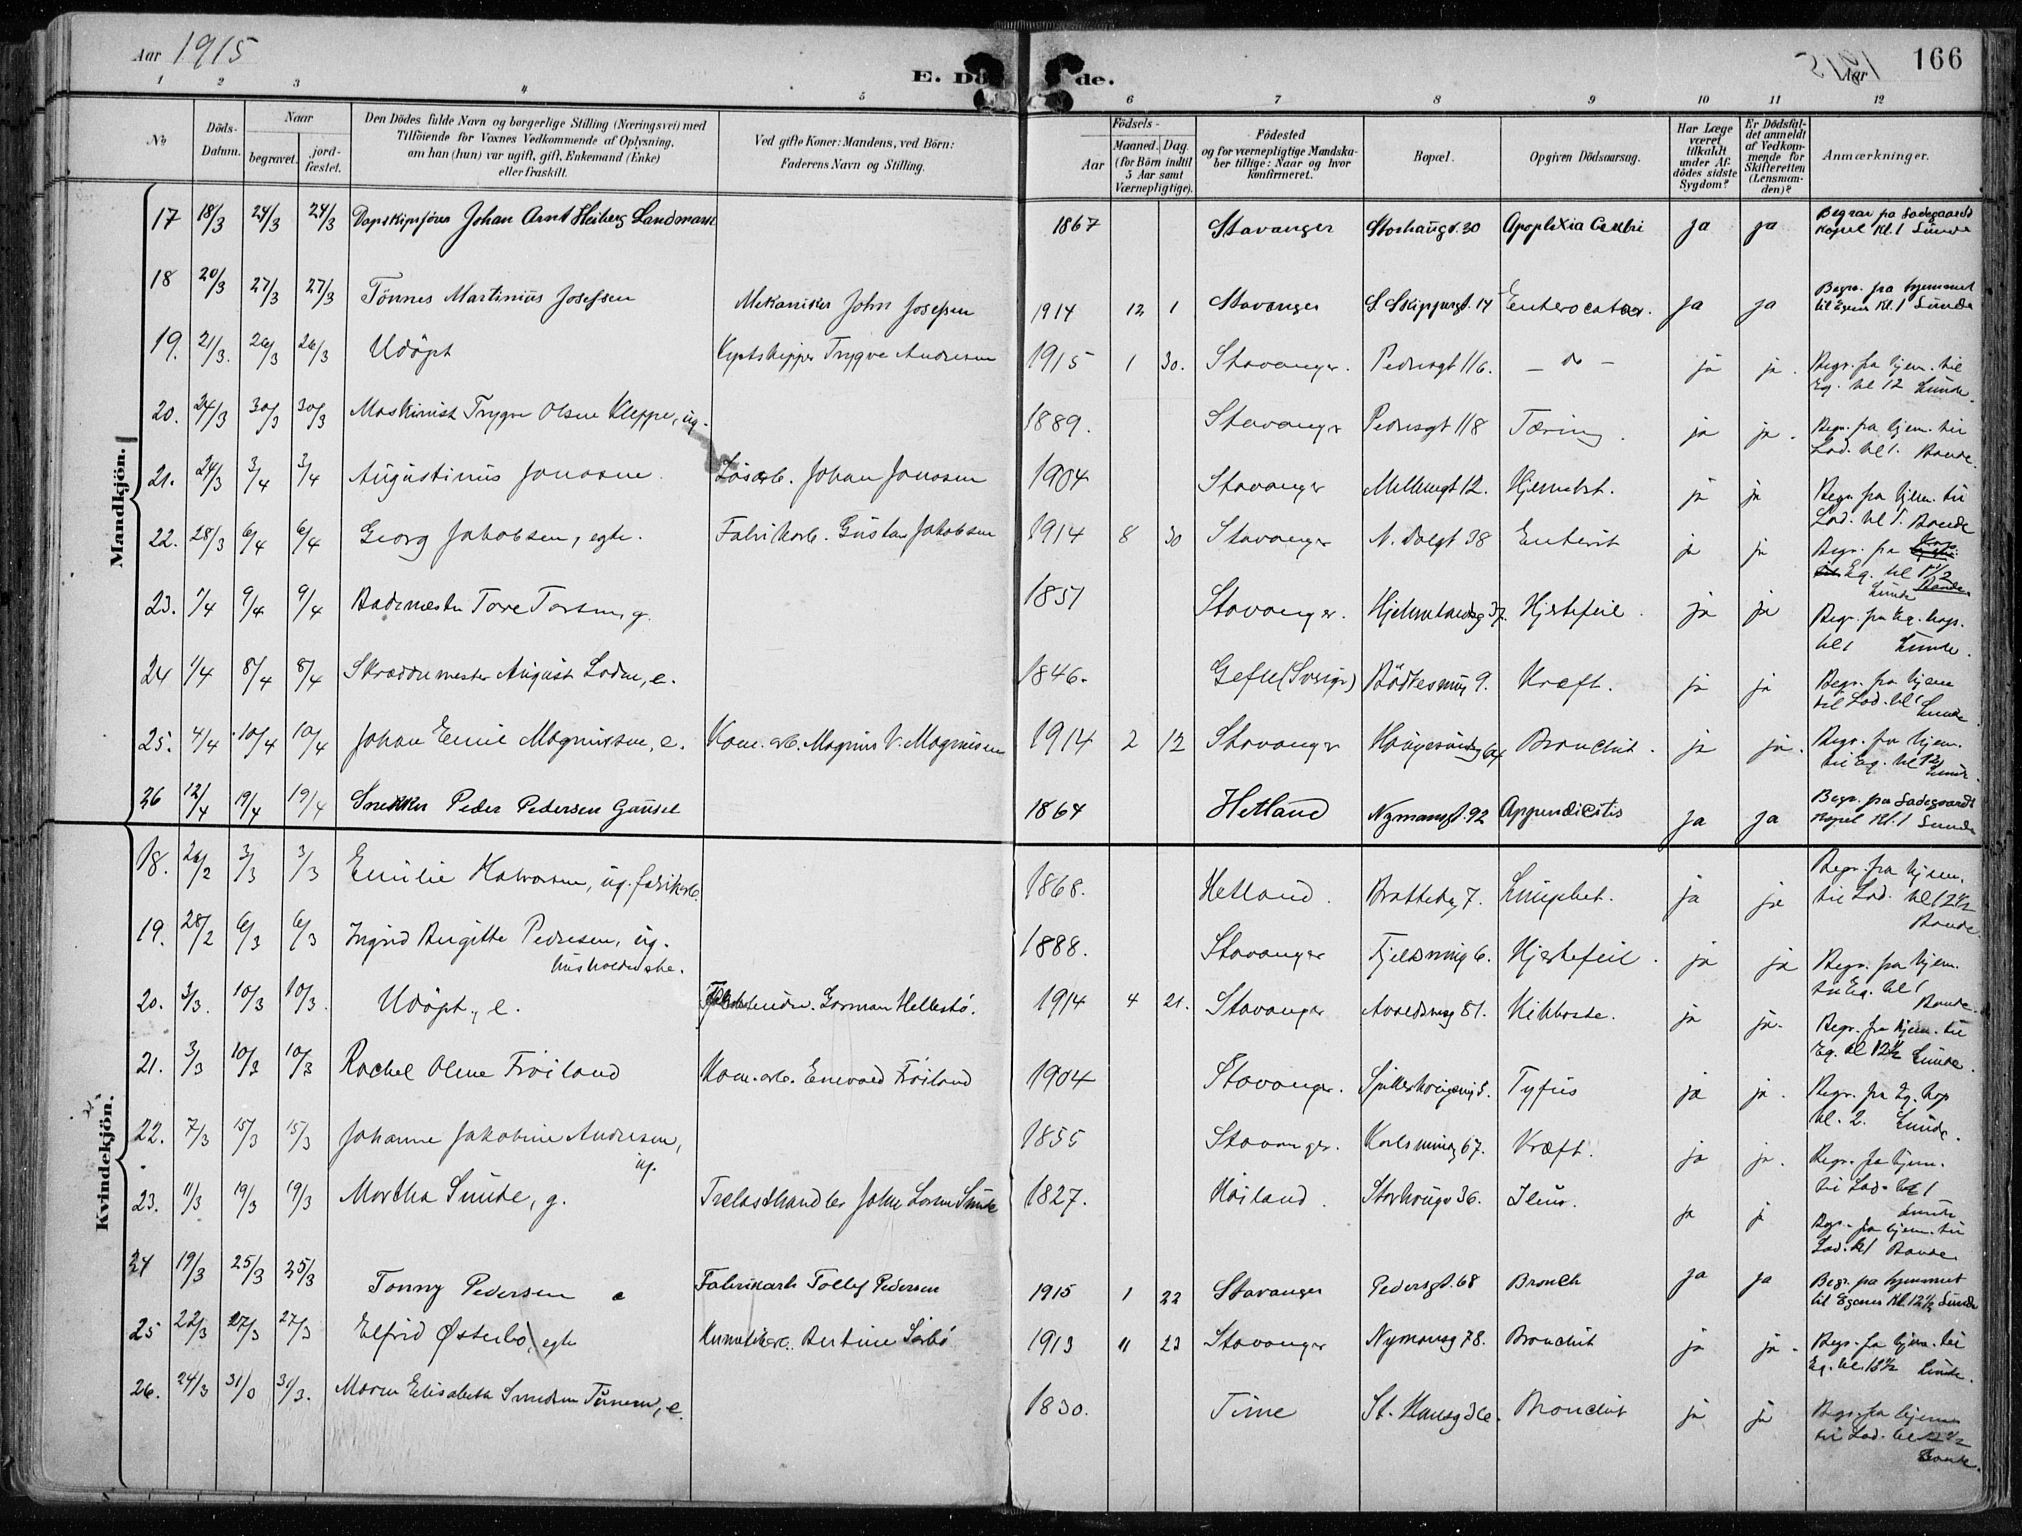 Aar 1915
E. Dö de.
Aar 1915
166
1 2 3 4 5 6 7 8 9 10 11 12
No
Döds-
Datum.
Naar
begravet.
jord-
fæstet.
Den Dödes fulde Navn og borgerlige Stilling (Næringsvei) med
Tilföiende for Voxnes Vedkommende af Oplysning,
om han (hun) var ugift, gift, Enkemand (Enke)
eller fraskilt.
Ved gifte Koner: Mandens, ved Börn:
Faderens Navn og Stilling.
Födsels-
Aar
Maaned. Dag.
(for Börn indtil
5 Aar samt
Værnepligtige).
Födested
og for værnepligtige Mandska-
ber tillige: Naar og hvor
konfirmeret.
Bopæl.
Opgiven Dödsaarsag.
Har Læge
været
tilkaldt
under Af-
dödes sidste
Sygdom?
Er Dödsfal-
det anmeldt
af Vedkom-
mende for
Skifteretten
(Lensman-
den)?
Anmærkninger.
Mandkjön.
17 18/3 24/3 24/3 Johan Arnt Heiberg Landmark 1867 Stavanger Storhaugv. 30 Apoplexia Cerebri ja ja Begrav fra Ladegaards
Kapel Kl. 1 Lunde
18 20/3 27/3 27/3 Tönnes Martinius Josefsen Mekaniker John Josefsen 1914 12 1 Stavanger S. Skippergt. 14 Enterocatar. ja ja Begr. fra hjemmet
til Egenes Kl. 1 Lunde
19. 21/3. 26/3 26/3 Udöpt Trygve Andresen 1915 1 30. Stavanger. Pedersgt 116. — do — ja ja. Begr. fra hjem. til
Eg. kl 12 Lunde.
20. 24/3 30/3 30/3 Maskinist Trygve Olsen Kleppe, ug. 1889. Stavanger Pedersgt 118 Tæring. ja ja. Begr. fra hjem. til
Lad. kl 1. Bonde.
21. 24/3 3/4 3/4 Augustinus Jonasen. Lösarb. Johan Jonasen 1904 Stavanger Mellemgt 12. Hjernebet. ja ja Begr. fra hjem. til
Lad. kl 1. Bonde
22. 28/3 6/4 6/4 Georg Jakobsen, egte. Fabrikarb. Gustav Jakobsen 1914 8 30 Stavanger N. Dalgt 38 Enterit ja ja Begr. fra Kap.
Eg. kl 1 1/2
Lunde
23. 1/4 9/4 9/4 Bademester Tore Torsen, g. 1851 Stavanger. Hjelmelandsg 37. Hjertefeil. ja ja Begr. fra Eg. kap.
kl 1 Lunde.
24 1/4 8/4 8/4 Skræddermester August Loden, e. 1846. Gefle (Sverige) Bödkersmug 9. Kræft. ja ja Begr. fra hjem
til Lad. kl 1
Lunde
25. 4/4 10/4 10/4 Johan Emil Magnussen, e. Kom. arb. Magnus V. Magnussen 1914 2 12 Stavanger Haugesundsg 64 Bronchit. ja ja. Begr. fra hjem.
til Eg. kl 12
Lunde.
26 12/4 19/4 19/4 Snekker Peder Pedersen Gausel 1864 Hetland Nymansgt. 92 Appendicitis ja ja Begr. fra Ladegaards
Kapel Kl. 1 Lunde
Kvindekjön.
18. 26/2 3/3 3/3 Emilie Halvorsen, ug. fabrikarb. 1868. Hetland. Brattebg 7. Lungebet. ja ja Begr. fra hjem.
til Lad. kl 12 1/2
Bonde.
19. 28/2 6/3 6/3 Ingrid Birgitte Pedersen, ug.
husholderske. 1888. Stavanger Fjeldsmug 6. Hjertefeil. ja ja Begr. fra hjem.
til Eg. kl 1
Bonde.
20. 3/3. 10/3 10/3. Udöpt, e. Gorman Hellestö. 1914 4 21. Stavanger Avaldsneg 81. Kikhoste. ja ja. Begr. fra hjem. til
Eg. kl 12 1/2 Lunde.
21. 3/3 10/3 10/3 Rachel Oline Fröiland Kom. arb. Enevald Fröiland 1904 Stavanger. Tyfus ja ja. Begr. fra Eg. kap
kl. 2. Lunde.
22. 7/3 15/3 15/3 Johanne Jakobine Andresen,
ug. 1855 Stavanger. Karlsmindeg 67. Kræft. ja ja. Begr. fra hjem.
til Lad. kl 1
Lunde
23. 11/3 19/3 19/3 Martha Sunde, g. Trelasthandler John Larsen Sunde 1827. Höiland. Storhaugv 36. Ileus. ja ja Begr. fra hjem. til
Lad. kl 1 Bonde.
24 19/3 25/3 25/3 Tonny Pedersen e Fabrikarb Tollef Pedersen 1915 1 22 Stavanger Pedersgt. 68 Bronch ja ja Begr. fra hjemmet
til Egenes Kl. 12 1/2 Lunde
25 22/3 27/3 27/3 Elfrid Østerbo, egte Hermetikarb. Bertine Sörbö 1913 11 23 Stavanger Nymansg 78. Bronchit ja ja. Begr. fra hjem. til
Eg. kl 1 1/2 Lunde.
26. 24/3 31/0 31/3. Maren Elisabeth e. 1830. Time St. Hansg 36. Bronchit ja ja Begr. fra hjem
til Lad. kl 12 1/2
Bonde.